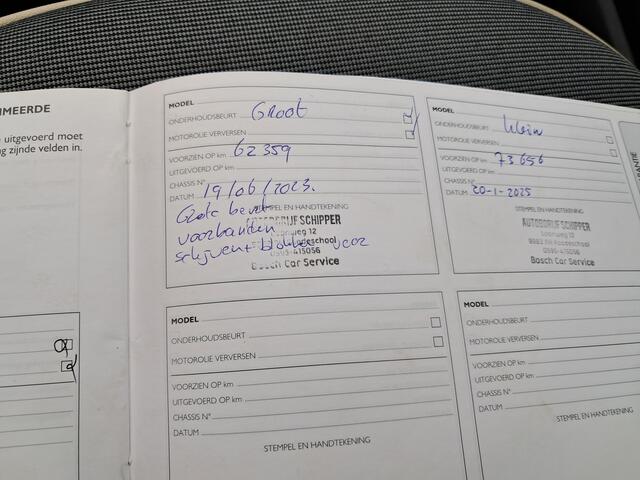 IMEERDE
uitgevoerd moet
g zijnde velden in.
MODEL
Groot
ONDERHOUDSBEURT
MOTOROLIE VERVERSEN
VOORZIEN OP km 62359
UITGEVOERD OP km
CHASSIS N°
DATUM 19/06/2023.
STEMPEL EN HANDTEKENING
Grote beurt
voorbanden
schijven + blokken voor
AUTOBEDRIJF SCHIPPER
12
0595-415056
Bosch Car Service
MODEL
Klein
ONDERHOUDSBEURT
MOTOROLIE VERVERSEN
VOORZIEN OP km 73656
UITGEVOERD OP km
CHASSIS N°
DATUM 20-1-2025
STEMPEL EN HANDTEKENING
AUTOBEDRIJF SCHIPPER
12
0595-415056
Bosch Car Service
MODEL
ONDERHOUDSBEURT
MOTOROLIE VERVERSEN
VOORZIEN OP km
UITGEVOERD OP km
CHASSIS N°
DATUM
STEMPEL EN HANDTEKENING
MODEL
ONDERHOUDSBEURT
MOTOROLIE VERVERSEN
VOORZIEN OP km
UITGEVOERD OP km
CHASSIS N°
DATUM
STEMPEL EN HANDTEKENING